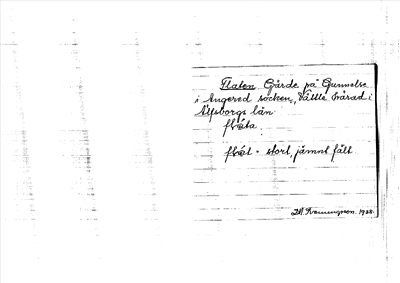 Flaten Gärde på Gunnelse
i Angered socken, Vättle härad i
Älfsborgs län
flɵta.
flɵt = stort, jämnt fält
1925.